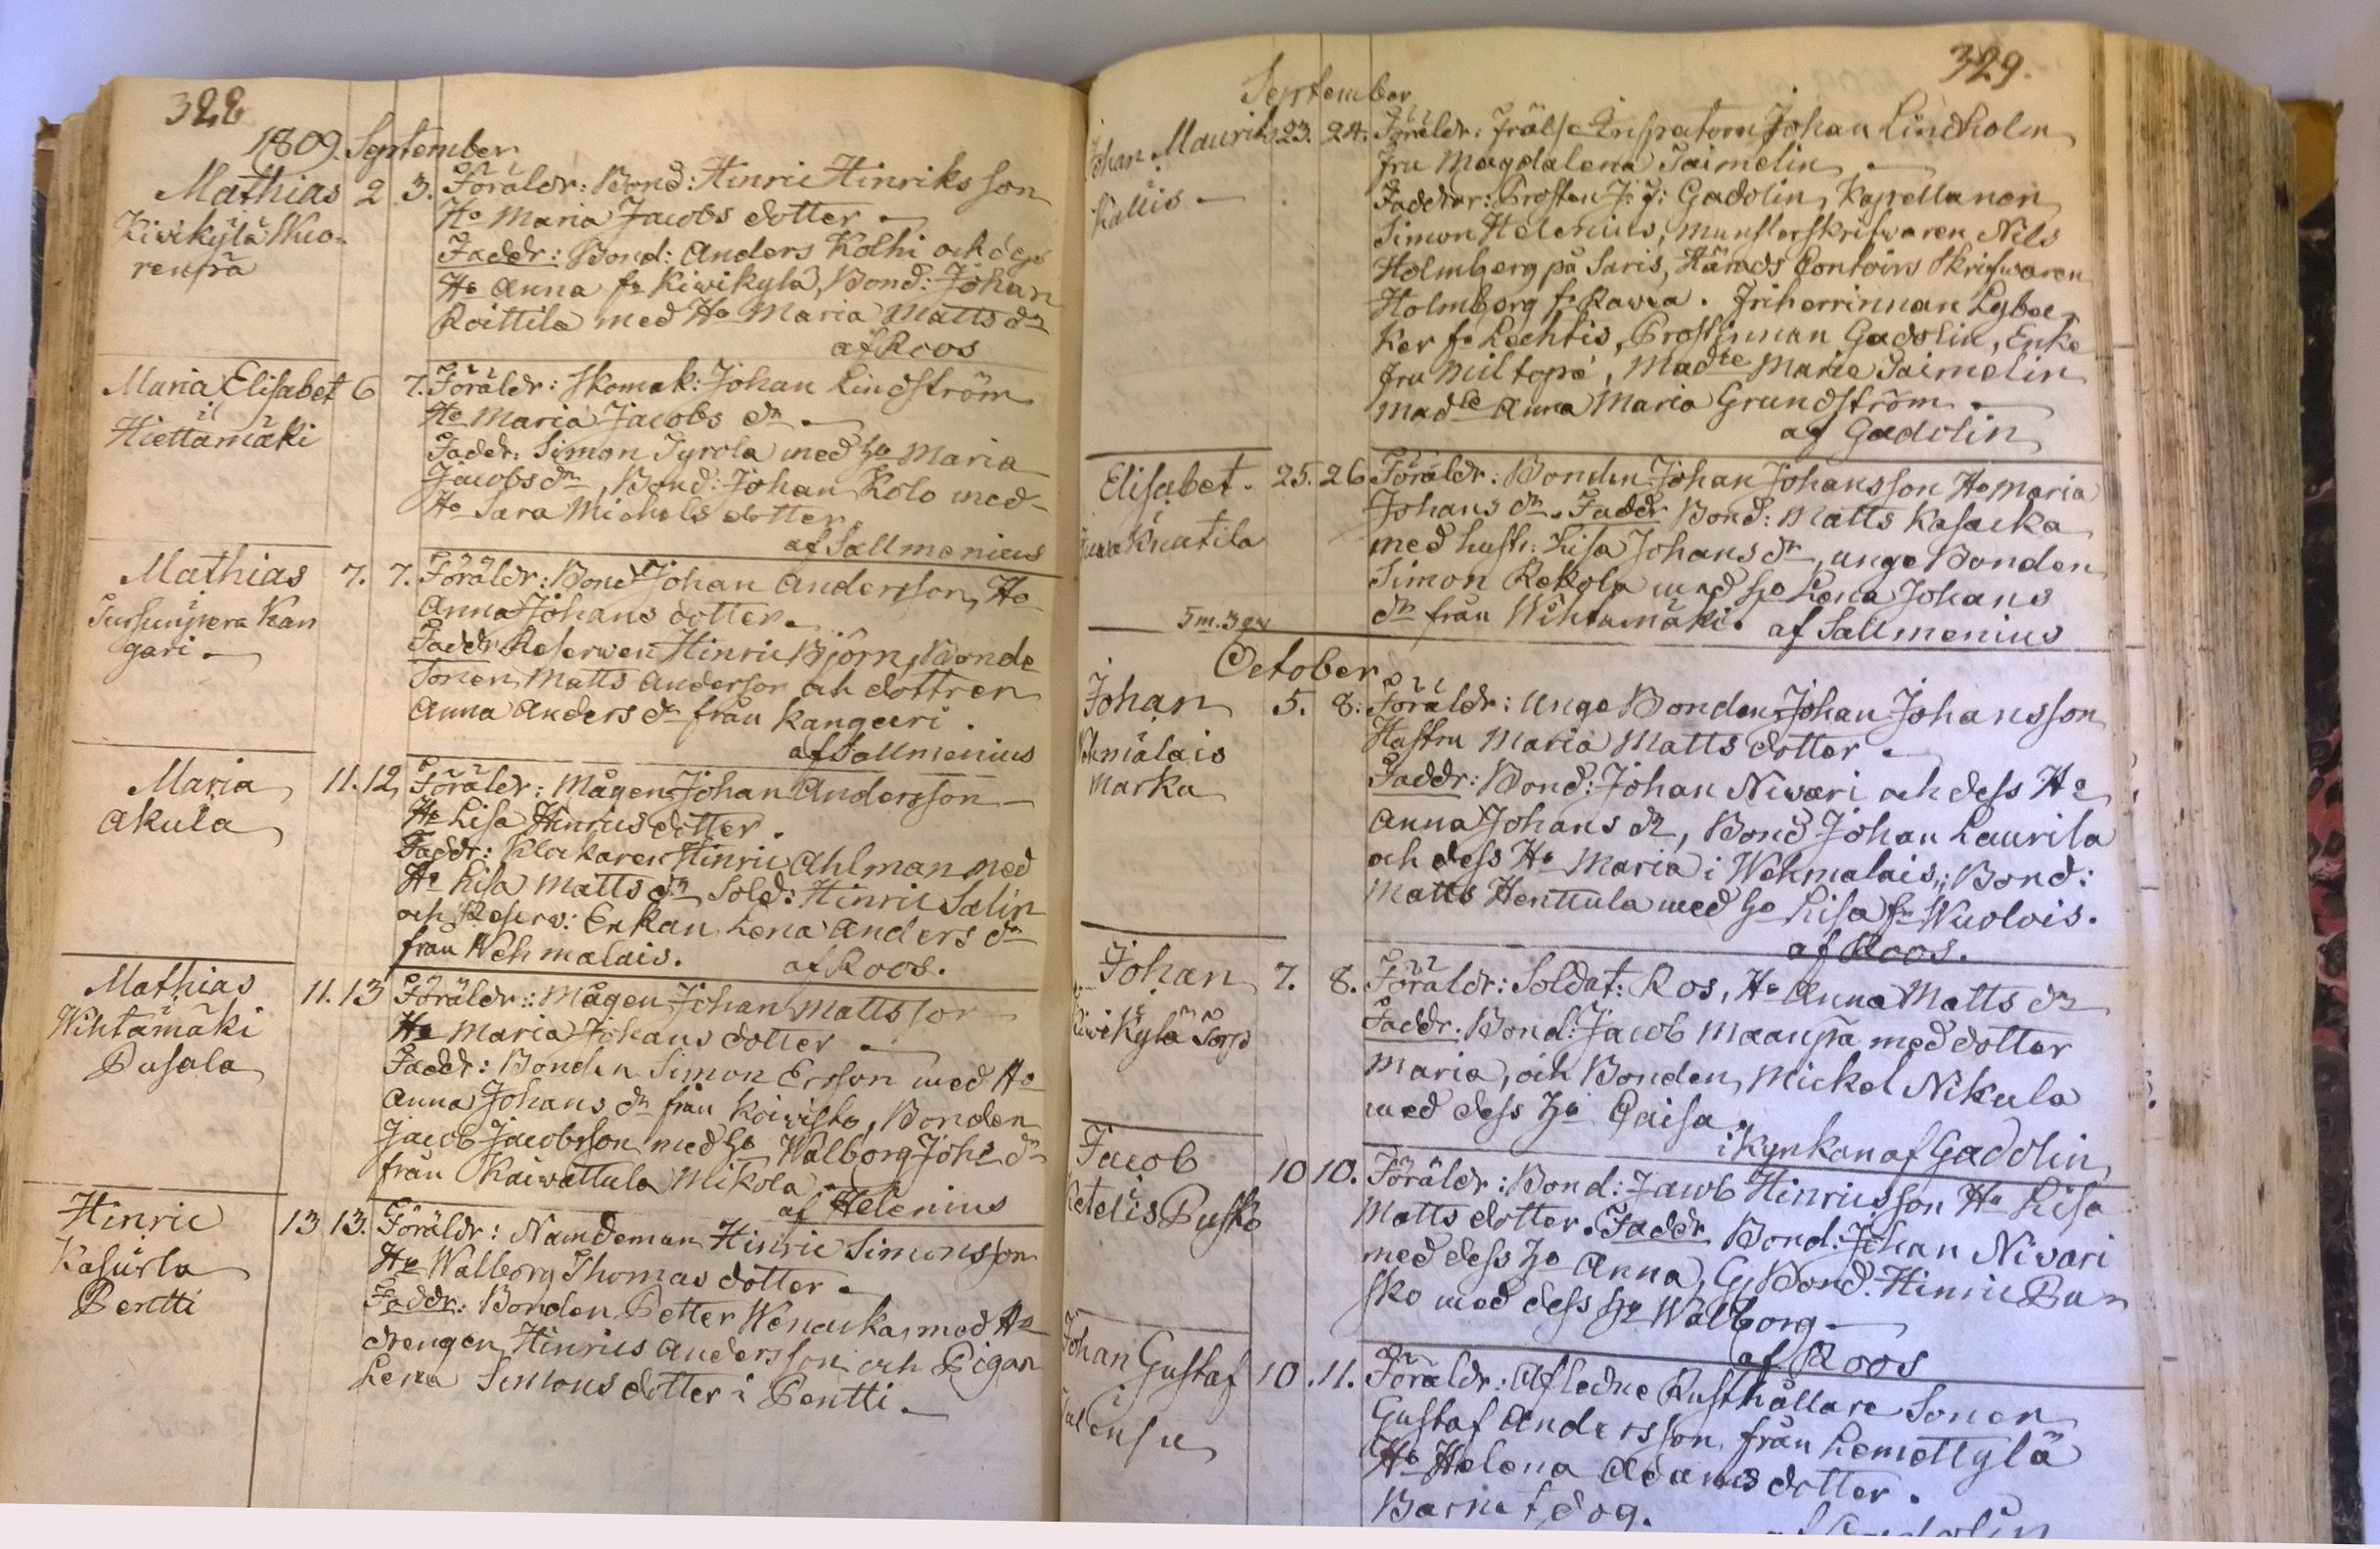 328
1809. September
Mathias 2 3. Föräldr: Bond: Hinric Hinriksson
Kiwikylä Wuo-
renpä
Ho Maria Jacobs dotter
Faddr: Bond: Anders Kolhi och dess
Ho Anna fr Kiwikylä, Bond: Johan
Roittila med Ho Maria Matts dr
af Roos
Maria Elisabet 6 7. Föräldr: Skomak: Johan Lindström
Hiettamäki
Ho Maria Jacobs dr
Faddr. Simon Tyrola med Ho Maria
Jacobs dr, Bond: Johan Kolo med
Ho Sara Michels dotter
af Sallmenius
Mathias 7. 7. Föräldr: Bond Johan Andersson, Ho
Kan
gari
Anna Johans dotter.
Faddr Reserwen Hinric Björn, Bonde
Sonen Matts Anderson och dottren
Anna Anders dr från Kangari.
af Sallmenius
Maria 11. 12, Föräldr: Mågen Johan Andersson
Akula
Ho Lisa Hinrics dotter.
Faddr: Klockaren Hinric Ahlman med
Ho Lisa Matts dr Sold: Hinric Salin
och Reserv: Enkan Lena Anders dr
från Wehmalais. af Roos.
Mathias 11. 13 Föräldr: Mågen Johan Mattsson
Wihtamäki
Pusala
Ho Maria Johans dotter
Faddr: Bonden Simon Ersson med Ho
Anna Johans dr från Koiwisto, Bonden
Jacob Jacobsson med Ho Walborg Johs dr
från Kaiwattula Mikola
af Helenius
Hinric 13 13. Föräldr: Nämdeman Hinric Simonsson
Kasurla
Pentti
Ho Walborg Thomas dotter
Faddr: Bonden Petter Wenauka, med Ho
drengen Hinrics Andersson och Pigan
Lena Simons dotter i Pentti
329.
September
Johan Maurits 23. 24. Föräldr: Frälse Inspatorn Johan Lindholm
Kallis
fru Magdalena Taimelin
Faddrar: Prosten J: J: Gadolin, Kapellanen
Simon Helenius, Munsterskrifwaren Nils
Holmberg på Saris, Härads Contoirs Skrifwaren
Holmberg fr Kawea. Friherrinnan Lybec-
ker fr Lechtis, Prostinnan Gadolin, Enke
fru Miltopé, Madlle Maria Taimelin
madlle Anna Maria Grundström
af Gadolin
Elisabet. 25. 26 Föräldr: Bonden Johan Johansson Ho Maria
Knatila
Johans dr. Faddr Bond: Matts Kasacka
med hustr: Lisa Johans dr, unge Bonden
Simon Rekola med Ho Lena Johans
dr från Wihtamäki. af Sallmenius
5 m. 3 qv
October
Johan 5. 8. Föräldr: Unge Bonden Johan Johansson
Wehmalais
Marka
Hustru Maria Matts dotter
Faddr: Bond: Johan Niwari och dess Ho
Anna Johans dr, Bond Johan Laurila
och dess Ho Maria i Wehmalais, Bond:
Matts Henttula med Ho Lisa fr Wuolois.
af Roos.
Johan 7. 8. Föräldr: Soldat: Ros, Ho Anna Matts dr
Kiwikylä Torp
Faddr. Bond: Jacob Maanpä med dotter
Maria, och Bonden Mickel Nikula
med dess Ho Caisa.
i Kyrkan af Gadolin
Jacob 10 10. Föräldr: Bond: Jacob Hinricsson Ho Lisa
Pusko
Matts dotter. Faddr Bond: Johan Nivari
med dess Ho Anna, G, Bond. Hinric Pu-
sko med dess Ho Walborg
af Roos
Johan Gustaf 10. 11. Föräldr: Afledne Rusthållare Sonen
Gustaf Andersson från Lemottylä
Ho Helena Adams dotter.
Barnet dog.
af Gadolin